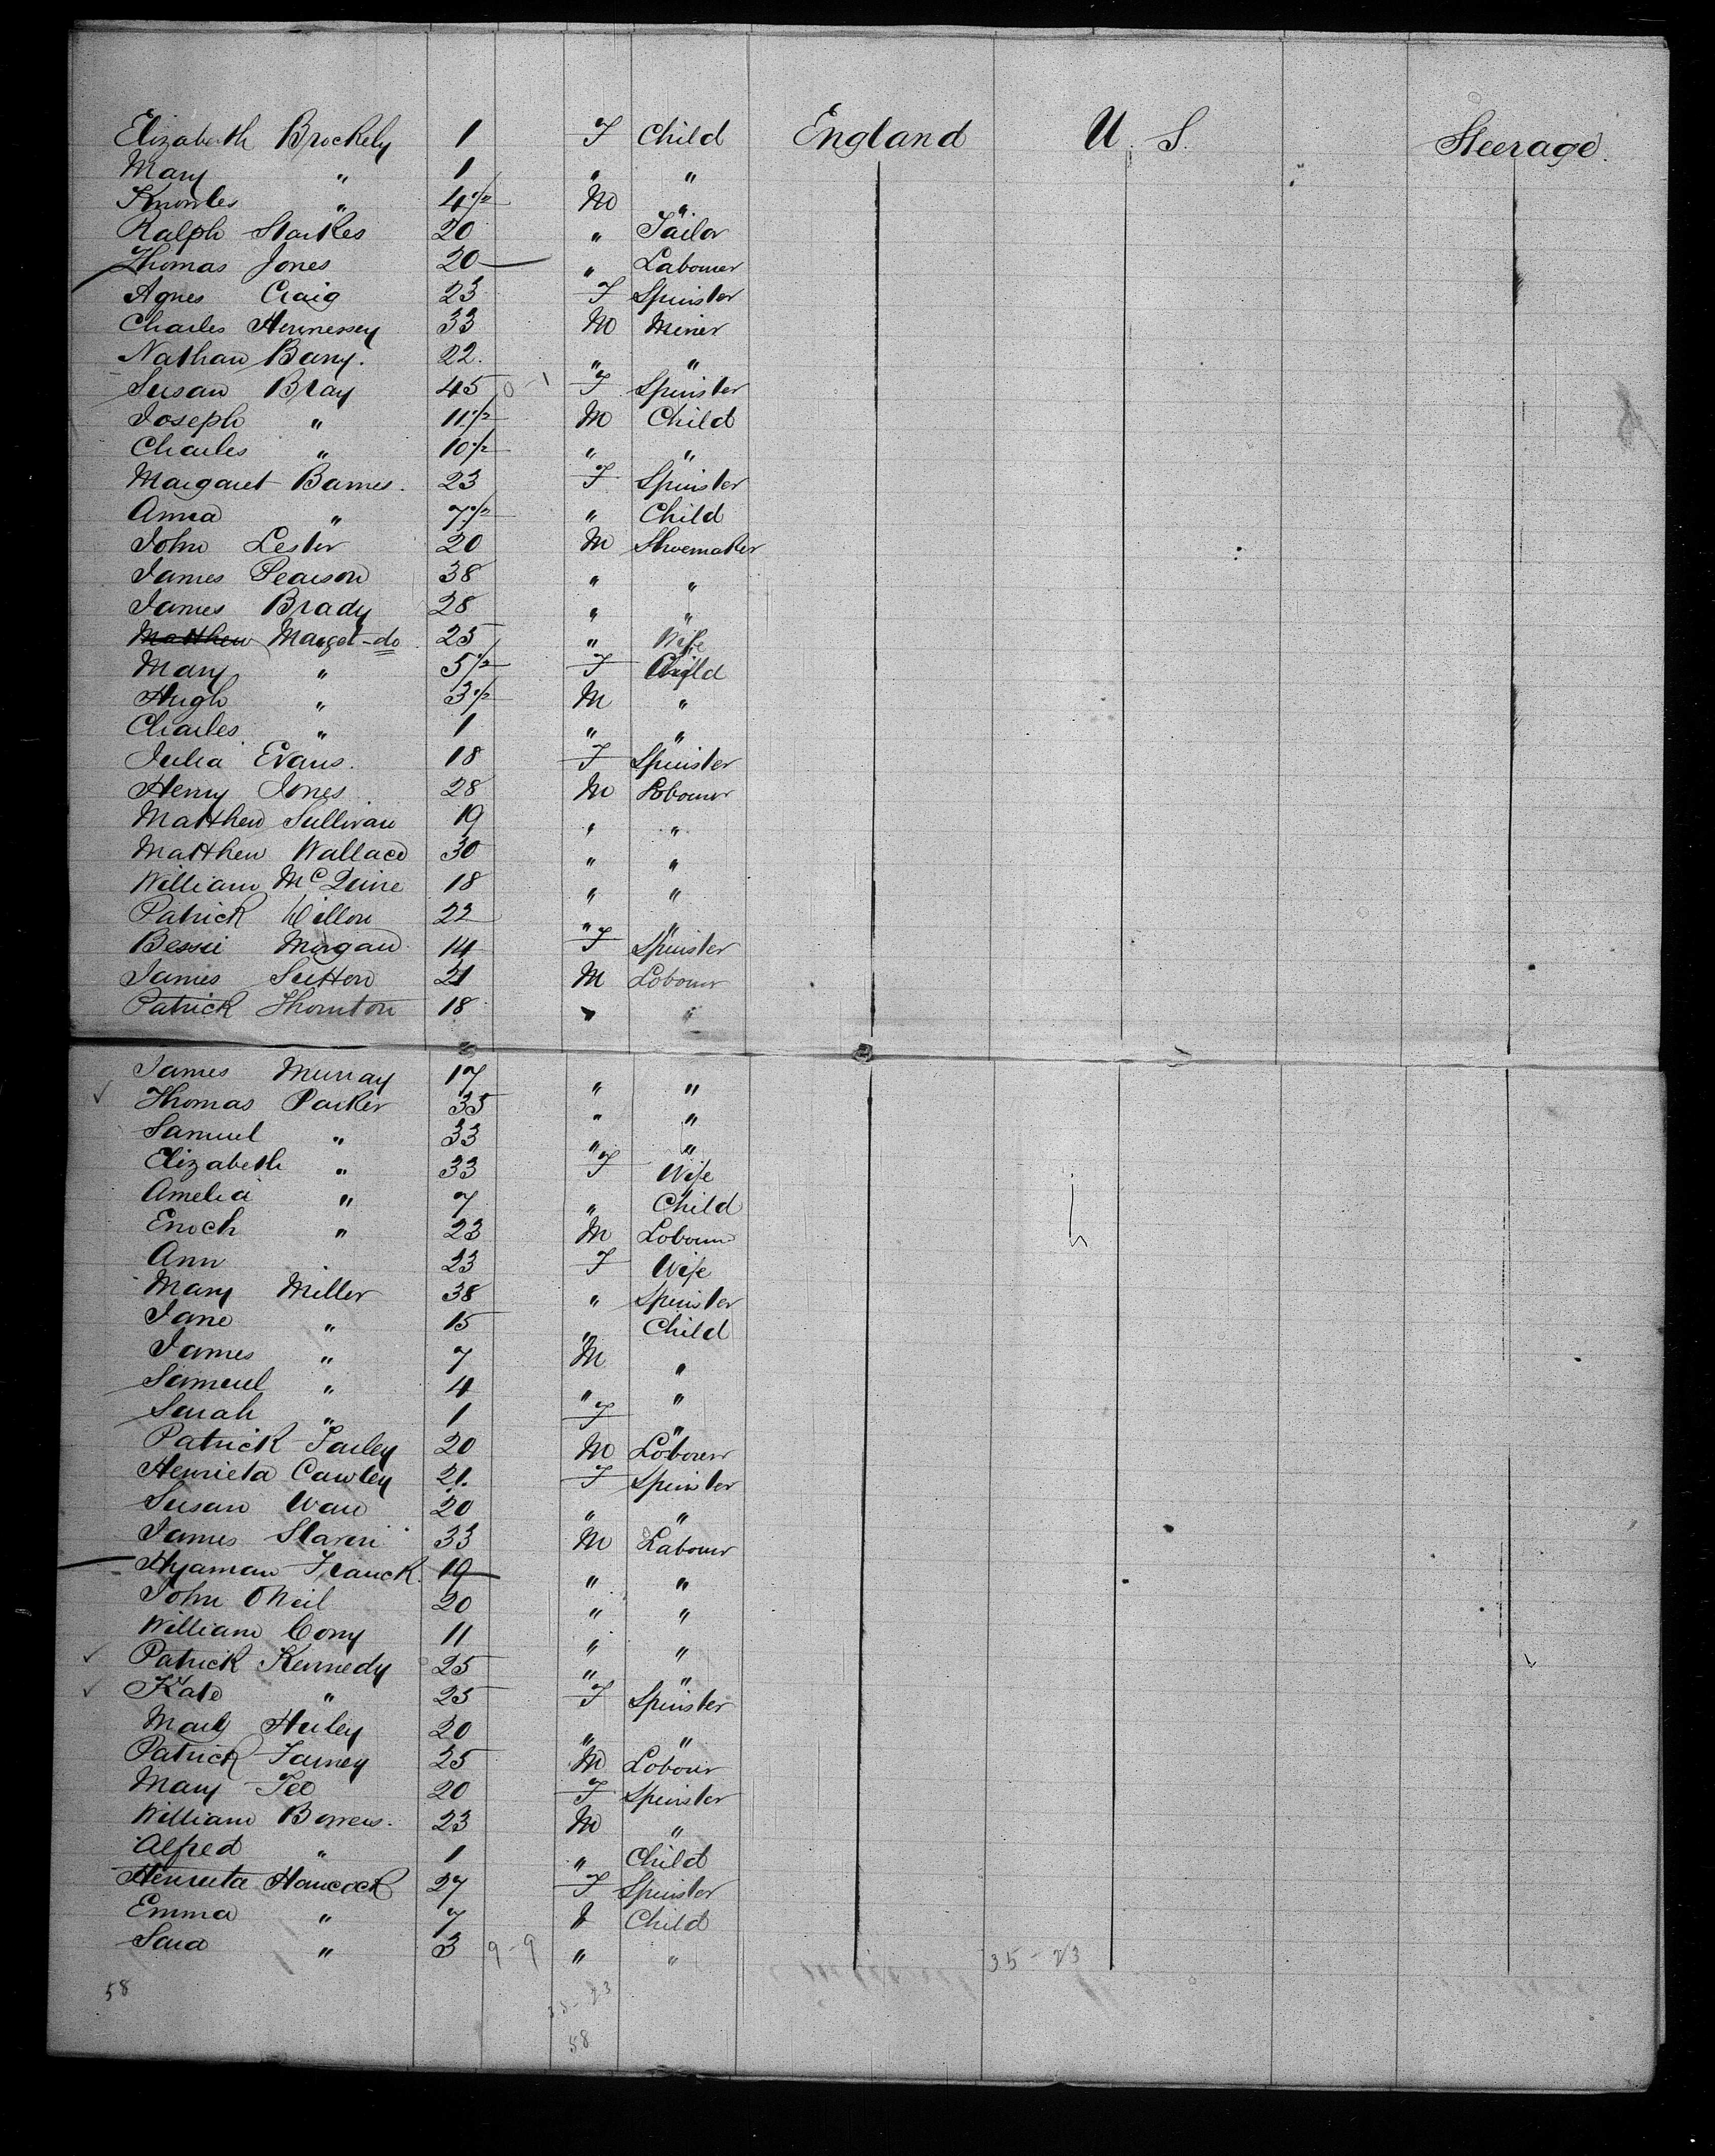 Elizabeth Brockely 1 F Child England U. S. Steerage.
Mary " 1 " "
Knowles " 4 1/2 M "
Ralph Starkes 20 " Tailor
Thomas Jones 20 " Labourer
Agnes Craig 23 F Spinster
Charles Hennessey 33 M Miner
Nathan Barry. 22. " "
Susan Bray 45 0-1 F Spinster
Joseph " 11 1/2 M Child
Charles " 10 1/2 " "
Margaret Barnes. 23 F Spinster
Anna " 7 1/2 " Child
John Lester 20 M Shoemaker
James Pearson 38 " "
James Brady 28 " "
Matthew Marget - do 25 " Wife
Mary " 5 1/2 F Child
Hugh " 3 1/2 M "
Charles " 1 " "
Julia Evans. 18 F Spinster
Henry Jones 28 M Labourer
Matthew Sullivan 19 " "
Matthew Wallace 30 " "
William McQuine 18 " "
Patrick Dillon 22 " "
Bessie Morgan 14 F Spinster
James Sutton 21 M Labourer
Patrick Thornton 18 " "
James Murray 17 " "
Thomas Parker 35 " "
Samuel " 33 " "
Elizabeth " 33 F Wife
Amelia " 7 " Child
Enoch " 23 M Labourer
Ann 23 F Wife
Mary Miller 38 " Spinster
Jane " 15 " Child
James " 7 M "
Samuel " 4 " "
Sarah " 1 F "
Patrick Farley 20 M Labourer
Henrieta Cawley 21. F Spinster
Susan 20 " "
James Slaven 33 M Labourer
Hyaman Franck. 19 " "
John ONeil 20 " "
William Cony 11 " "
Patrick Kennedy 25 " "
Kate " 25 F Spinster
Mary Hurley 20 " "
Patrick Farney 25 M Labourer
Mary Fee 20 F Spinster
William Bowers. 23 M "
Alfred " 1 " Child
Henrieta Hancock 27 F Spinster
Emma " 7 " Child
Sara " 3 9-9 " " 35-23
58 35-23
58